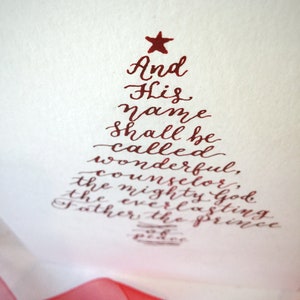 And
His
name
shall be
called
wonderful,
counselor,
the mighty God
the everlasting
Father the prince
of
peace